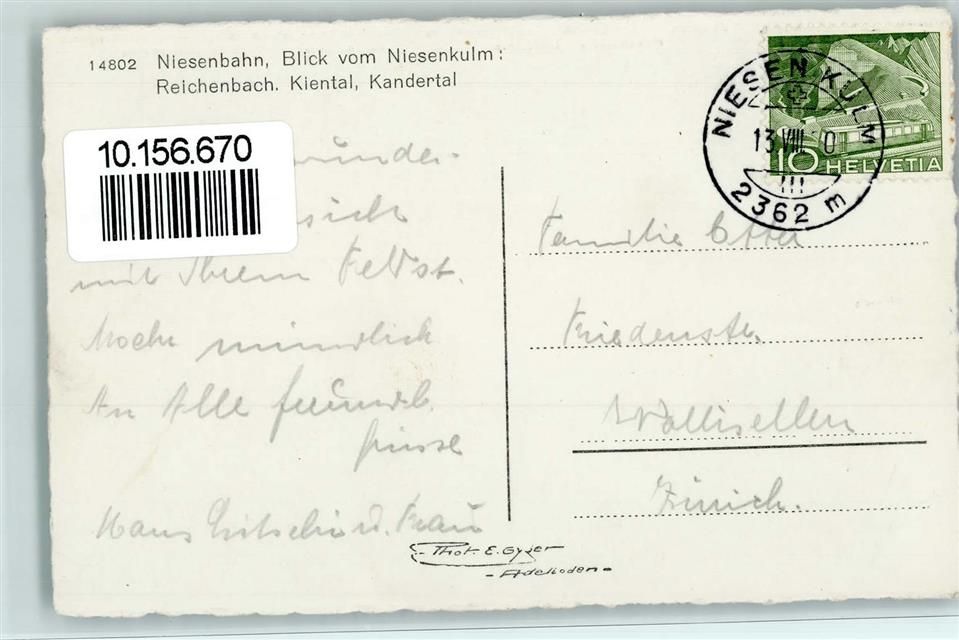 14802 Niesenbahn, Blick vom Niesenkulm:
Reichenbach. Kiental, Kandertal
10.156.670
NIESEN KULM
13.VIII. 0
2362 m
10 HELVETIA
wunder-
sicht
mit Ihrem Feldst.
Mochr mündlich
An Alle freundl.
Grüsse
Hans u. Frau
Familie
Friedenstr.
Wallisellen
Zürich.
Phot. E. Gyger
- Adelboden -